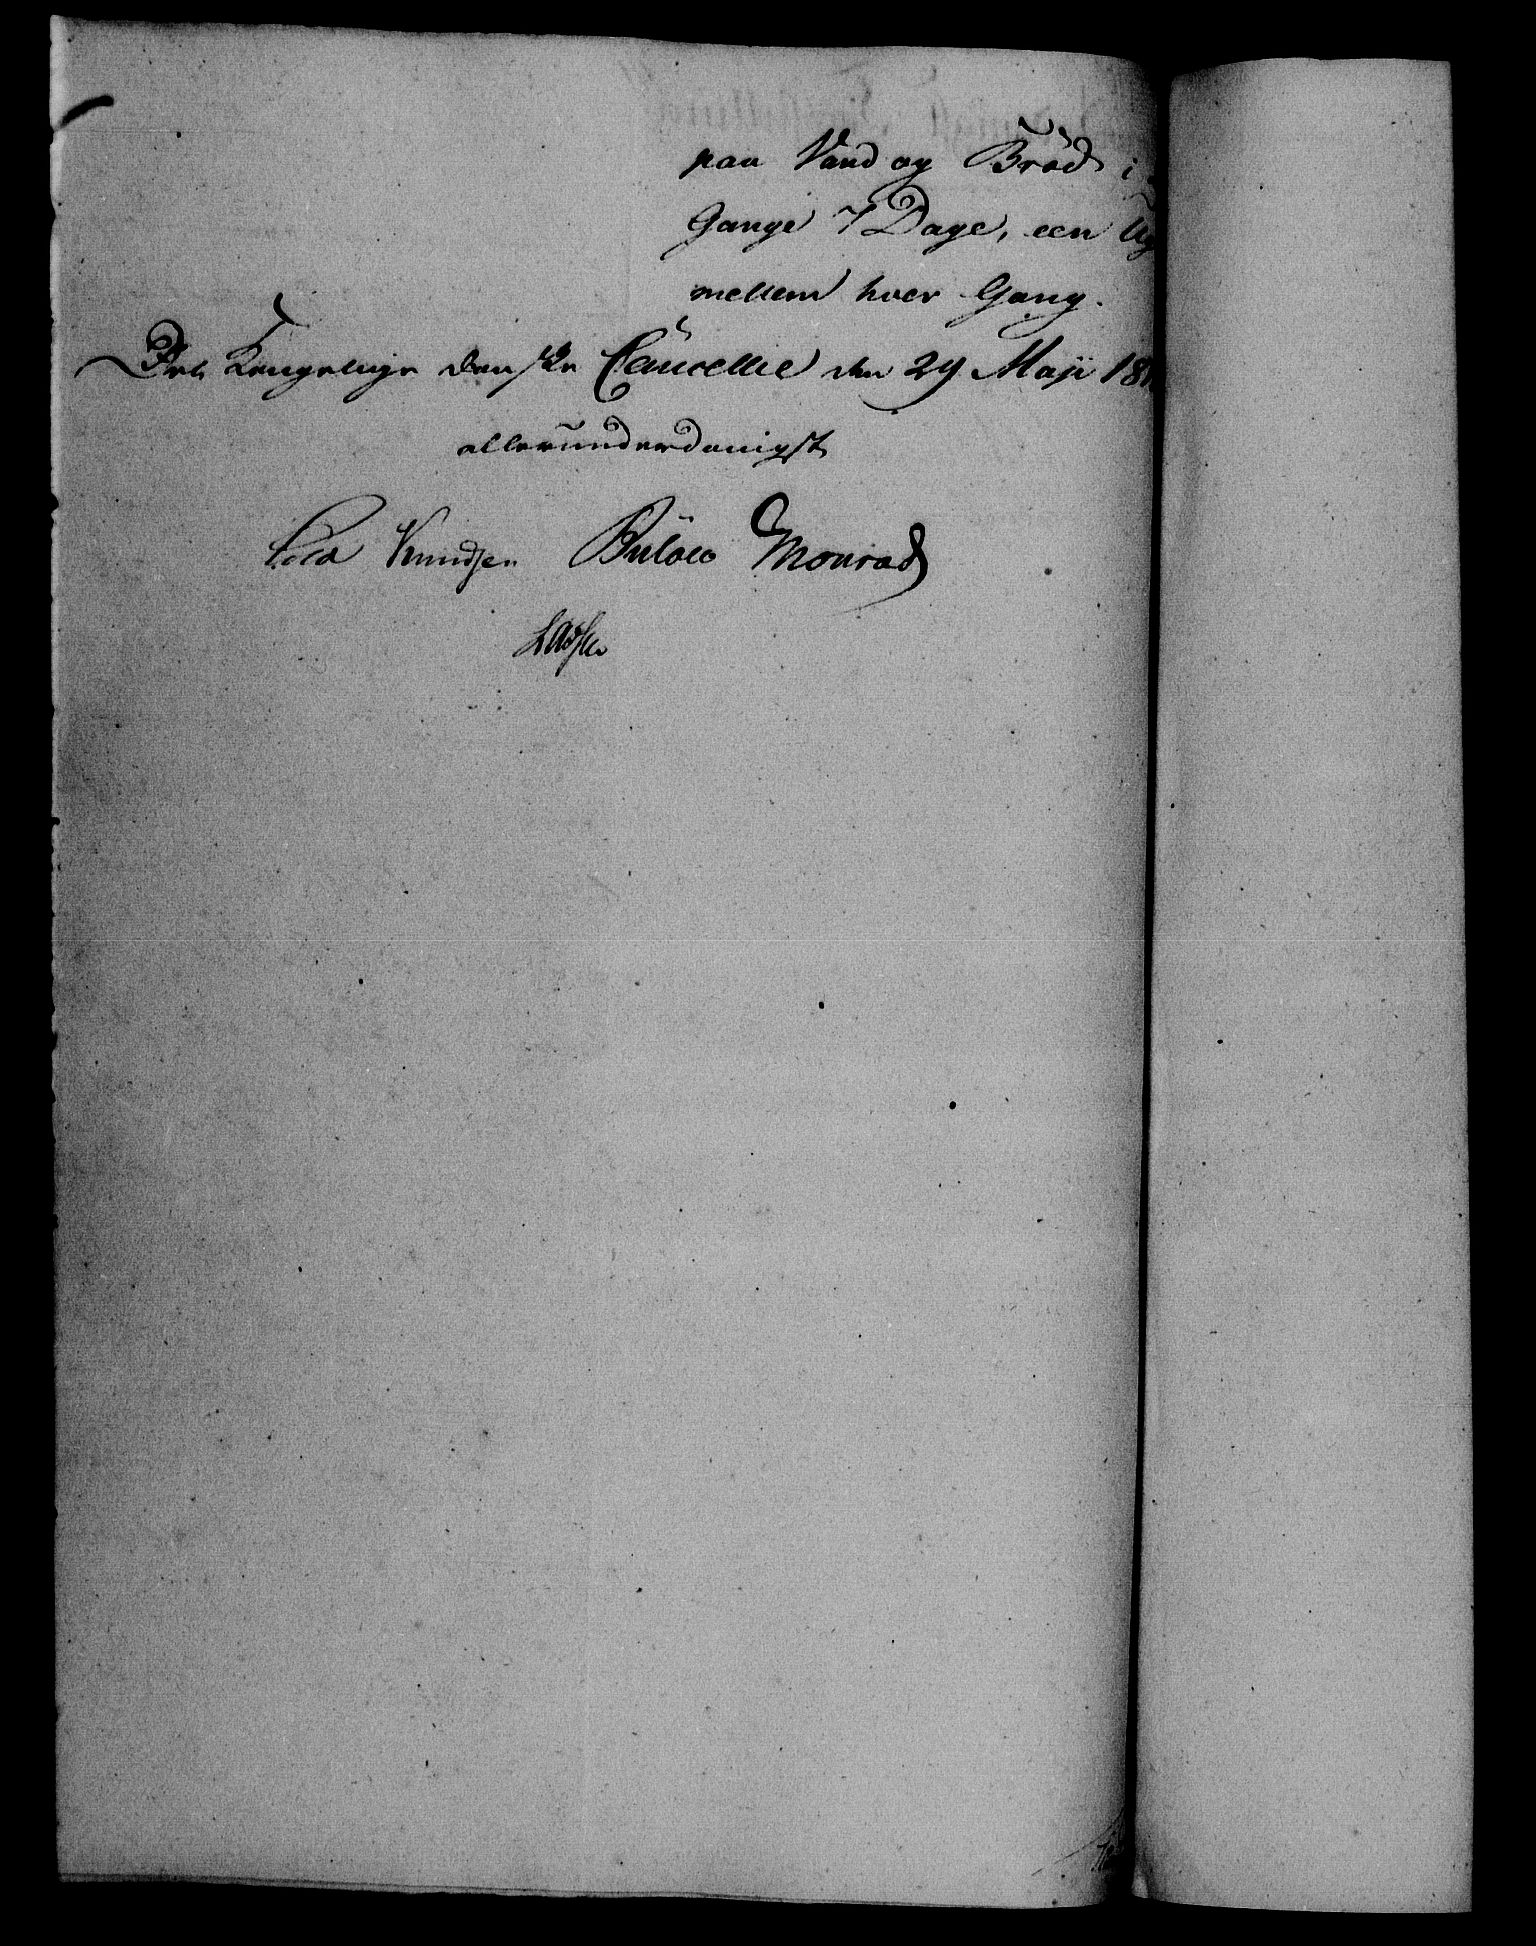 paa Vand og Brød i
Gange 7 Dage, een
mellem hver Gang.
Det Kongelige danske Cancellie den 29 Maji 18
allerunderdanigst
Knudsen Bülow Monrad